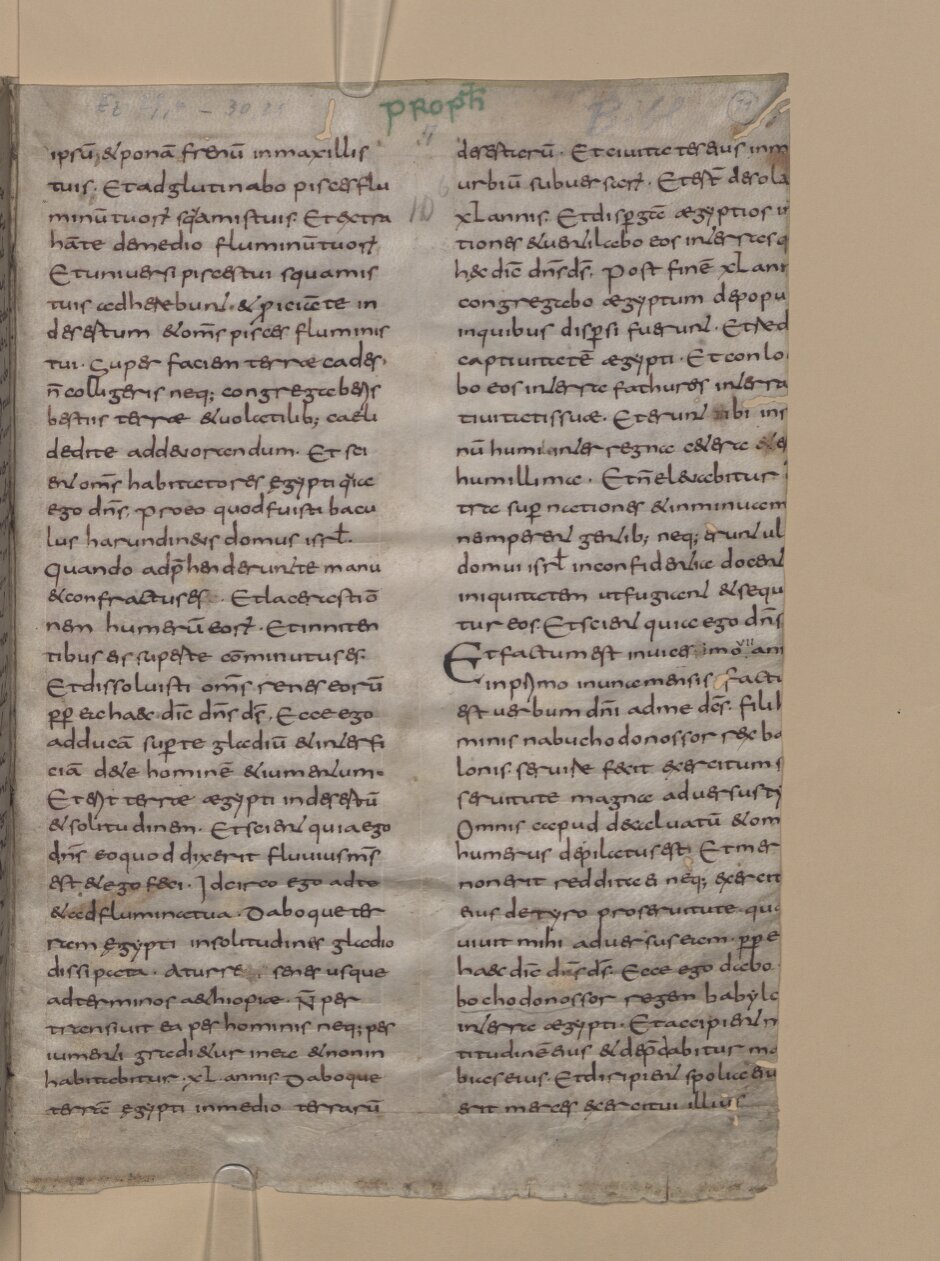 Ez 29,4 – 30,
PROPH
11
ipsū, & ponā frenū in maxillis
tuis. Et adglutinabo pisces flu
minū tuorū squamis tuis. Et extra
hā te de medio fluminū tuorū
Et universi pisces tui squamis
tuis adherebunt. & piciā te in
desertum & oms pisces fluminis
tui. Super faciem terrae cades.
n̄ colligeris neq; congregaberis
bestiis terrae & volatilib; caeli
dedi te ad devorandum. Et sci
ent oms habitatores egypti quia
ego dn̄s. Pro eo quod fuisti bacu
lus harundineus domus isrl̄.
Quando adp̄henderunt te manu
& confractus es. Et lacerasti ō
nem humerū eorū. Et inniten
tibus eis sup te cōminutus es.
Et dissoluisti om̄s renes eorū
pp̄erea haec dic̄ dn̄s ds̄. Ecce ego
adducā sup te gladiū & interfi
ciā de te hominē & iumentum.
Et erit terrae aegypti in desertū
& solitudinem. Et scient quia ego
dn̄s eo quod dixerit fluvius m̄s
est & ego feci. Idcirco ego ad te
& ad flumina tua. Daboque ter
ram egypti in solitudines gladio
dissipata. A turre senes usque
ad terminos aethiopiae. N̄ per
transivit ea pes hominis neq; pes
iumenti gradietur in ea & non in
habitabitur. xl. annis Daboque
terrā egypti in medio terrarū
desertarū. Et civitates eius in m
urbiū subversarū. Et est̄ desola
xl annis. Et dispgā aegyptios i
tiones & ventilabo eos in terras q
haec dic̄ dn̄s ds̄. Post finē xl ann
congregabo aegyptum de popu
in quibus dispsi fuerunt. Et red
captivitatē aegypti. Et conlo
bo eos in terra fathures in terra
tivitatis suae. Et erunt ibi in
nū humi inter regna cetera & e
humillima. Et n̄ elevabitur
tra sup nationes & inminuam
ne imperent gentib; neq; erunt ul
domui isrl̄ in confidentia docent
iniquitatem ut fugiant & sequ
tur eos. Et scient quia ego dn̄s
Et factum est in vices imo vii an
in p̄mo in una mensis facti
est verbum dn̄i ad me dc̄s. fili h
minis nabuchodonossor rex ba
lonis servire fecit exercitum s
servitute magna adversus ty
Omnis caput decalvatū & om
humerus depilatus est. Et mer
non erit reddita ei neq; exercit
eius de tyro pro servitute qua
vivit mihi adversus eam. pp̄ e
haec dic̄ dn̄s ds̄. Ecce ego dabo
bochodonossor regem babylo
in terra aegypti. Et accipient m
titudinē eius & dep̄dabitur ma
bias eius. Et diripient spolia eiu
erit merces exercitui illius